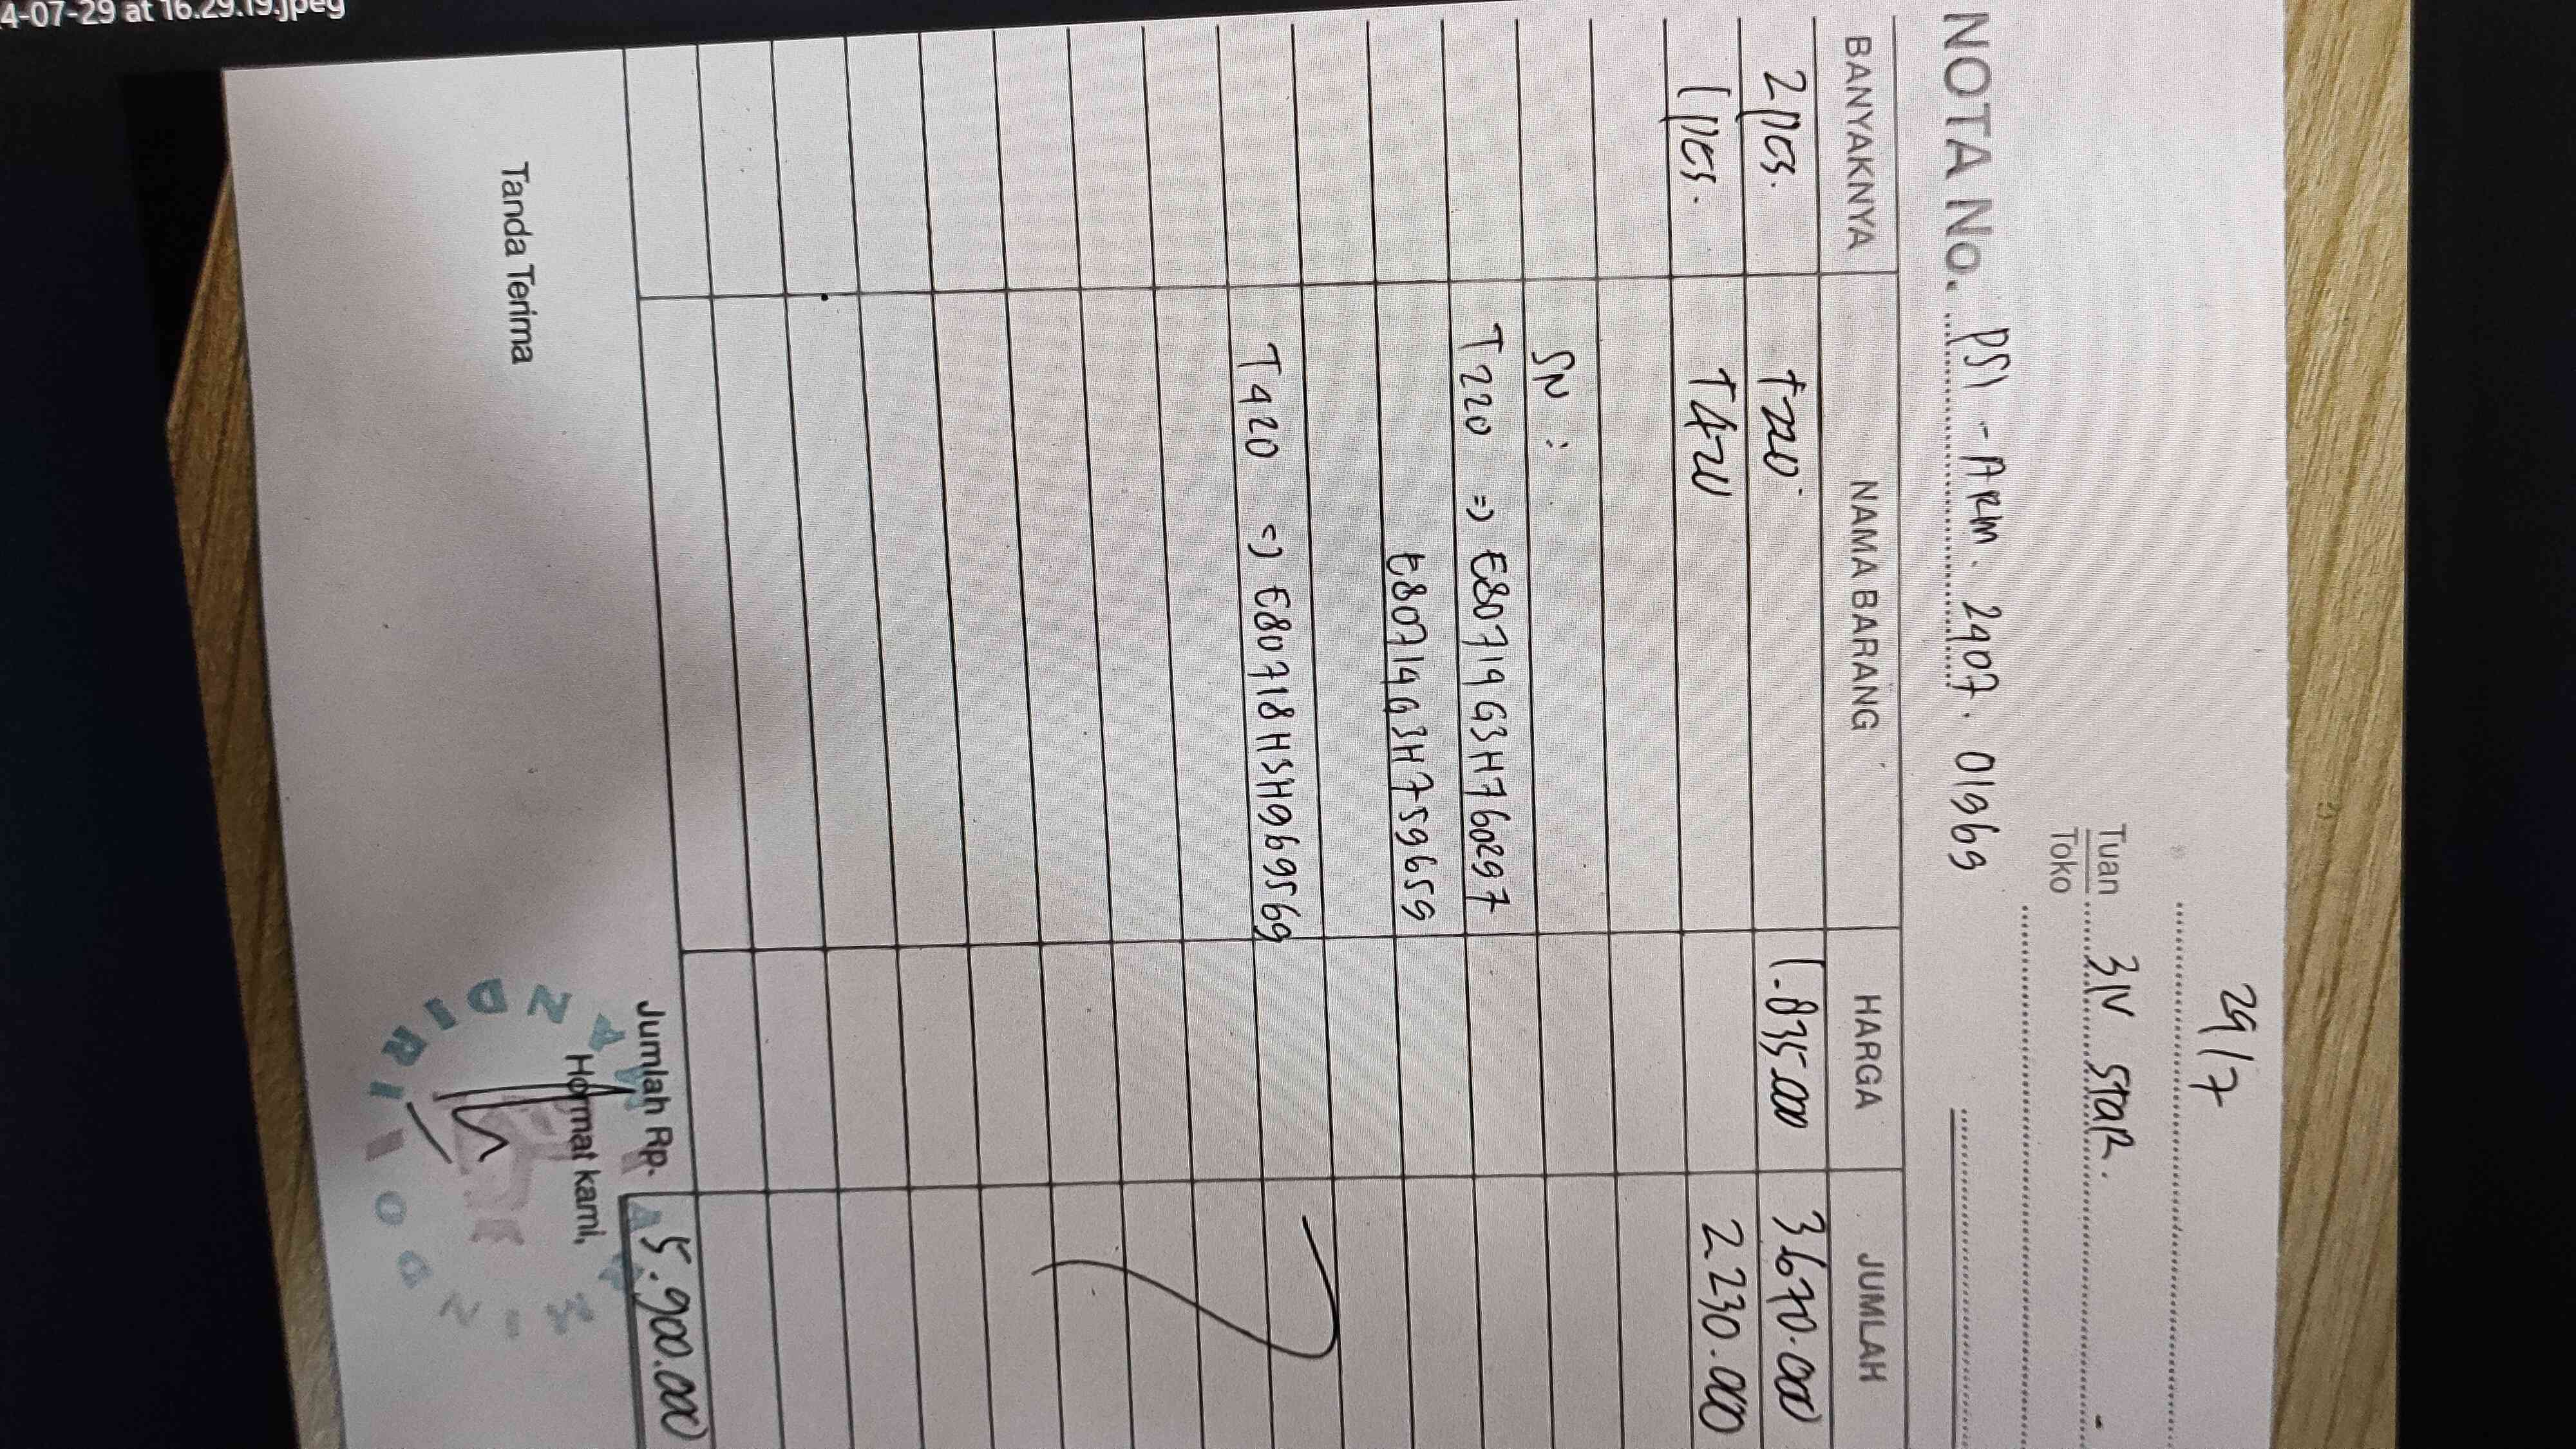 4-07-29 at 16.29.19.jpeg
29/7
Tuan 3IV Star.
Toko
NOTA No. PSI - ARM. 2407. 01969
BANYAKNYA NAMA BARANG HARGA JUMLAH
2 pcs. T220 1.835.000 3.670.000
1 pcs. T420 2.230.000
SN :
T220 => E80719G3H760297
E80714G3H759659
T420 => E80718H3H969569
Jumlah Rp. 5.900.000
Tanda Terima Hormat kami,
MANDIRI